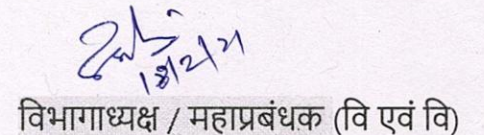 18/2/21
विभागाध्यक्ष / महाप्रबंधक (वि एवं वि)